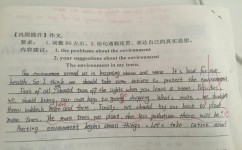 【巩固操作】作文。
要求: 1. 词数80左右。2. 语句通顺连贯，表达自己的真实思想。
内容建议: 1. the problems about the environment
2. your suggestions about the environment
The environment in my town.
The environment around us is becoming worse and worse. It's bad for our
health. So I think we should take some actions to protect the environment.
First of all, should turn off the lights when you leave a room.
we should bring our own bags to shopping. What's more,
them. And we should try our best to plant
more trees. The more trees we plant, the less pollution there will be.
Protecting environment begins about things. Let's take